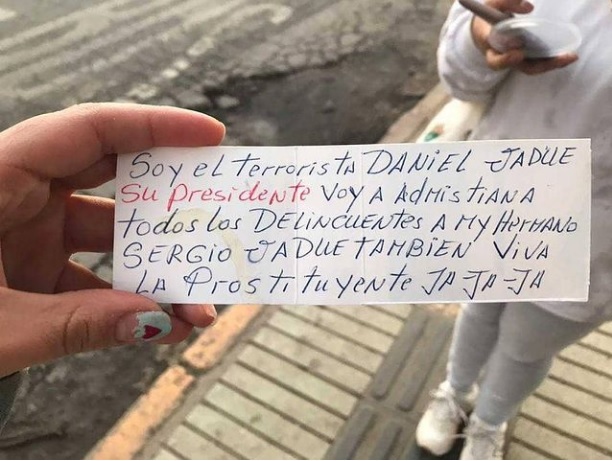 Soy el terrorista DANIEL JADUE
Su Presidente Voy A AdMistiANA
todos los DELINCUENTES A My HerMANO
SERGIO JADUE TAMBIEN VIVA
LA Prostituyente JA-JA-JA